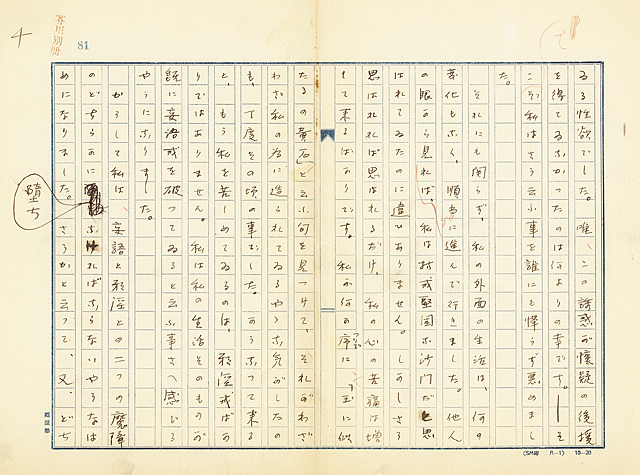 芥川別冊
81
4
る性欲でした。唯、この誘惑が懐疑の後援
を得てゐなかつたのは何よりの幸です。――そ
こで私はさう云ふ事を誰にも憚らず悪めまし
た。
それにも関らず、私の外面の生活は、何の
変化もなく、順当に進んで行きました。他人
の眼から見れば、私は持戒堅固な沙門だと思
はれてゐたのに違ひありません。しかしさう
思はれれば思はれるだけ、私の心の苦痛は増
して来るばかりです。私が何かの序に「玉に似
たるの黄石」と云ふ句を見つけて、それがわざ
わざ私の為に造られてゐるやうな気がしたの
も、丁度その頃の事でした。かうなつて来る
と、もう私を苦しめてゐるのは、邪淫戒ばか
りではありません。私は私の生活そのものが
既に妄語戒を破つてゐると云ふ事さへ感じる
やうになりました。
かうして私は、妄語と邪淫との二つの魔障
のどちらかに堕ちなければならないやうなは
めになりました。さうかと云つて、又、どち
(SM印 A-1) 10-20